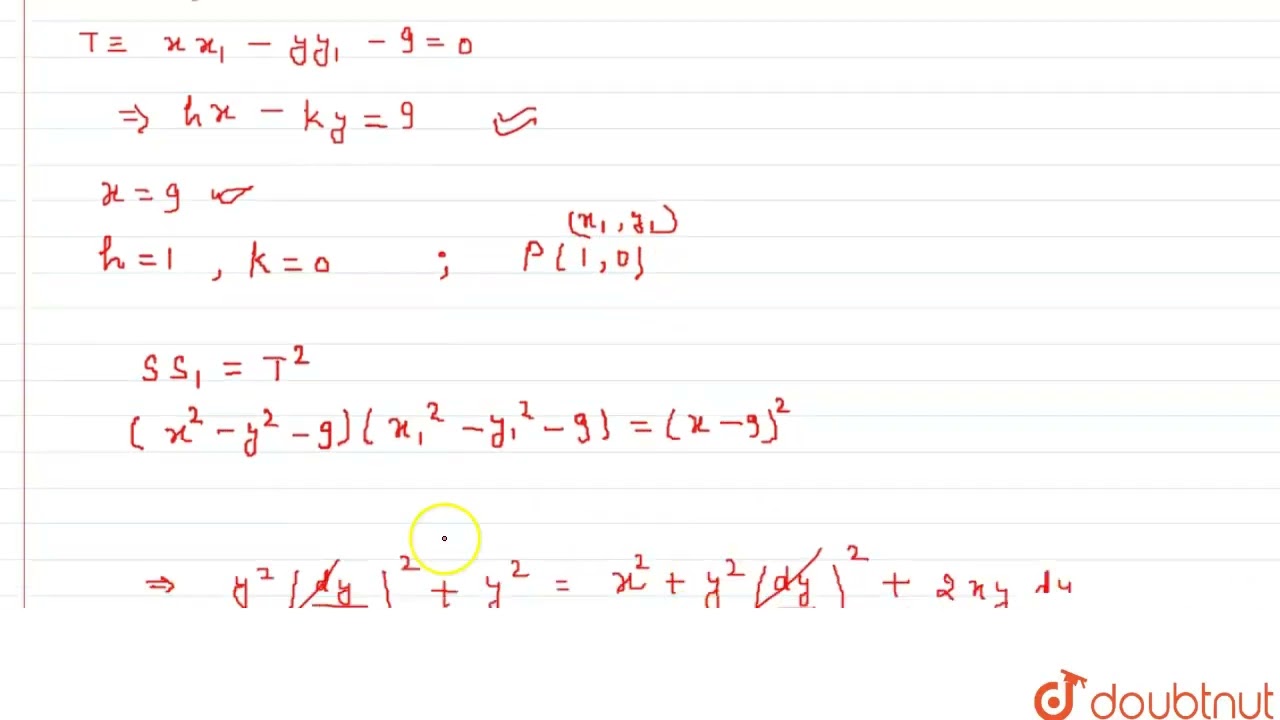 T ≡ x x₁ - y y₁ - 9 = 0
⇒ hx - ky = 9
x = 9
(x₁, y₁)
h = 1 , k = 0 ; P(1, 0)
S S₁ = T²
(x² - y² - 9)(x₁² - y₁² - 9) = (x - 9)²
⇒ y² (dy)² + y² = x² + y² (dy)² + 2xy dy
doubtnut